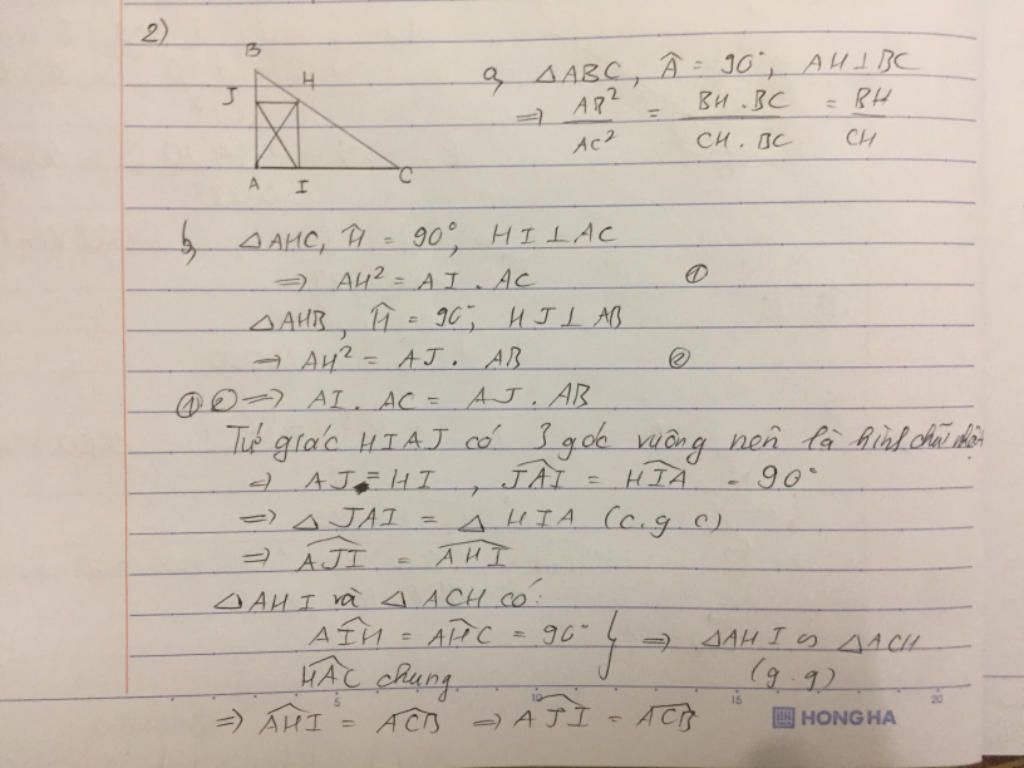 2)
B
J H
A I C
a, △ABC, Â = 90°, AH⊥BC
⇒ AB²/AC² = BH.BC/CH.BC = BH/CH
b, △AHC, Ĥ = 90°, HI⊥AC
⇒ AH² = AI . AC ①
△AHB, Ĥ = 90°, HJ⊥AB
⇒ AH² = AJ . AB ②
① ② ⇒ AI . AC = AJ . AB
Tứ giác HIAJ có 3 góc vuông nên là hình chữ nhật
⇒ AJ = HI , JÂI = HÎA = 90°
⇒ △JAI = △HIA (c.g.c)
⇒ AĴI = AĤI
△AHI và △ACH có:
AÎH = AĤC = 90° } ⇒ △AHI ∽ △ACH
HÂC chung (g.g)
5 10 15 20
⇒ AĤI = AĈB ⇒ AĴI = AĈB
HONG HA